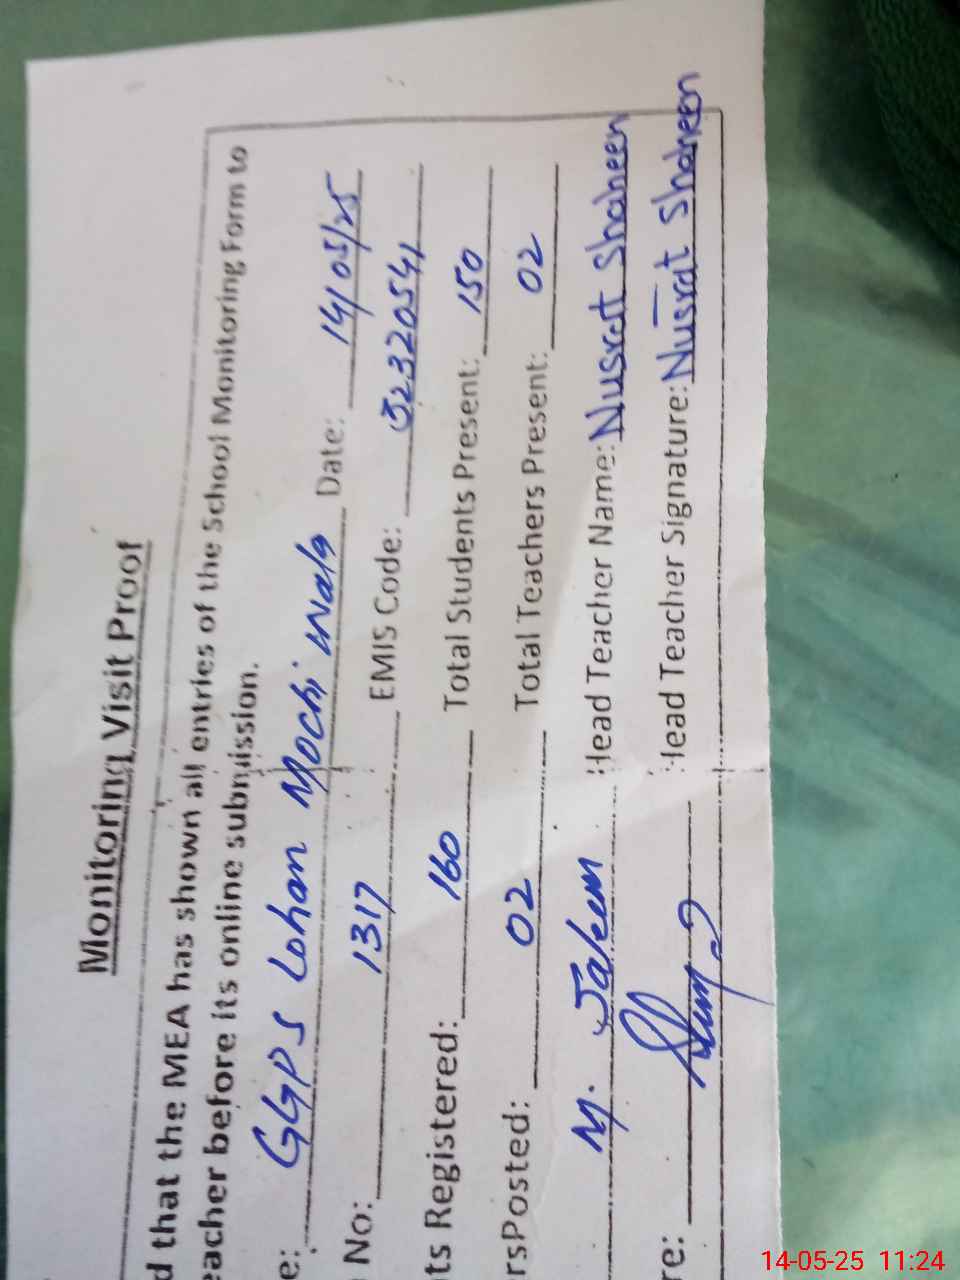 Monitoring Visit Proof
d that the MEA has shown all entries of the School Monitoring Form to
eacher before its online submission.
e: GGPS Lohan Mochi wala Date: 14/05/25
No: 1317 EMIS Code: 32320541
ts Registered: 160 Total Students Present: 150
rsPosted: 02 Total Teachers Present: 02
M. Saleem Head Teacher Name: Nusratt Shaheen
re: Head Teacher Signature: Nusrat Shaheen
14-05-25 11:24